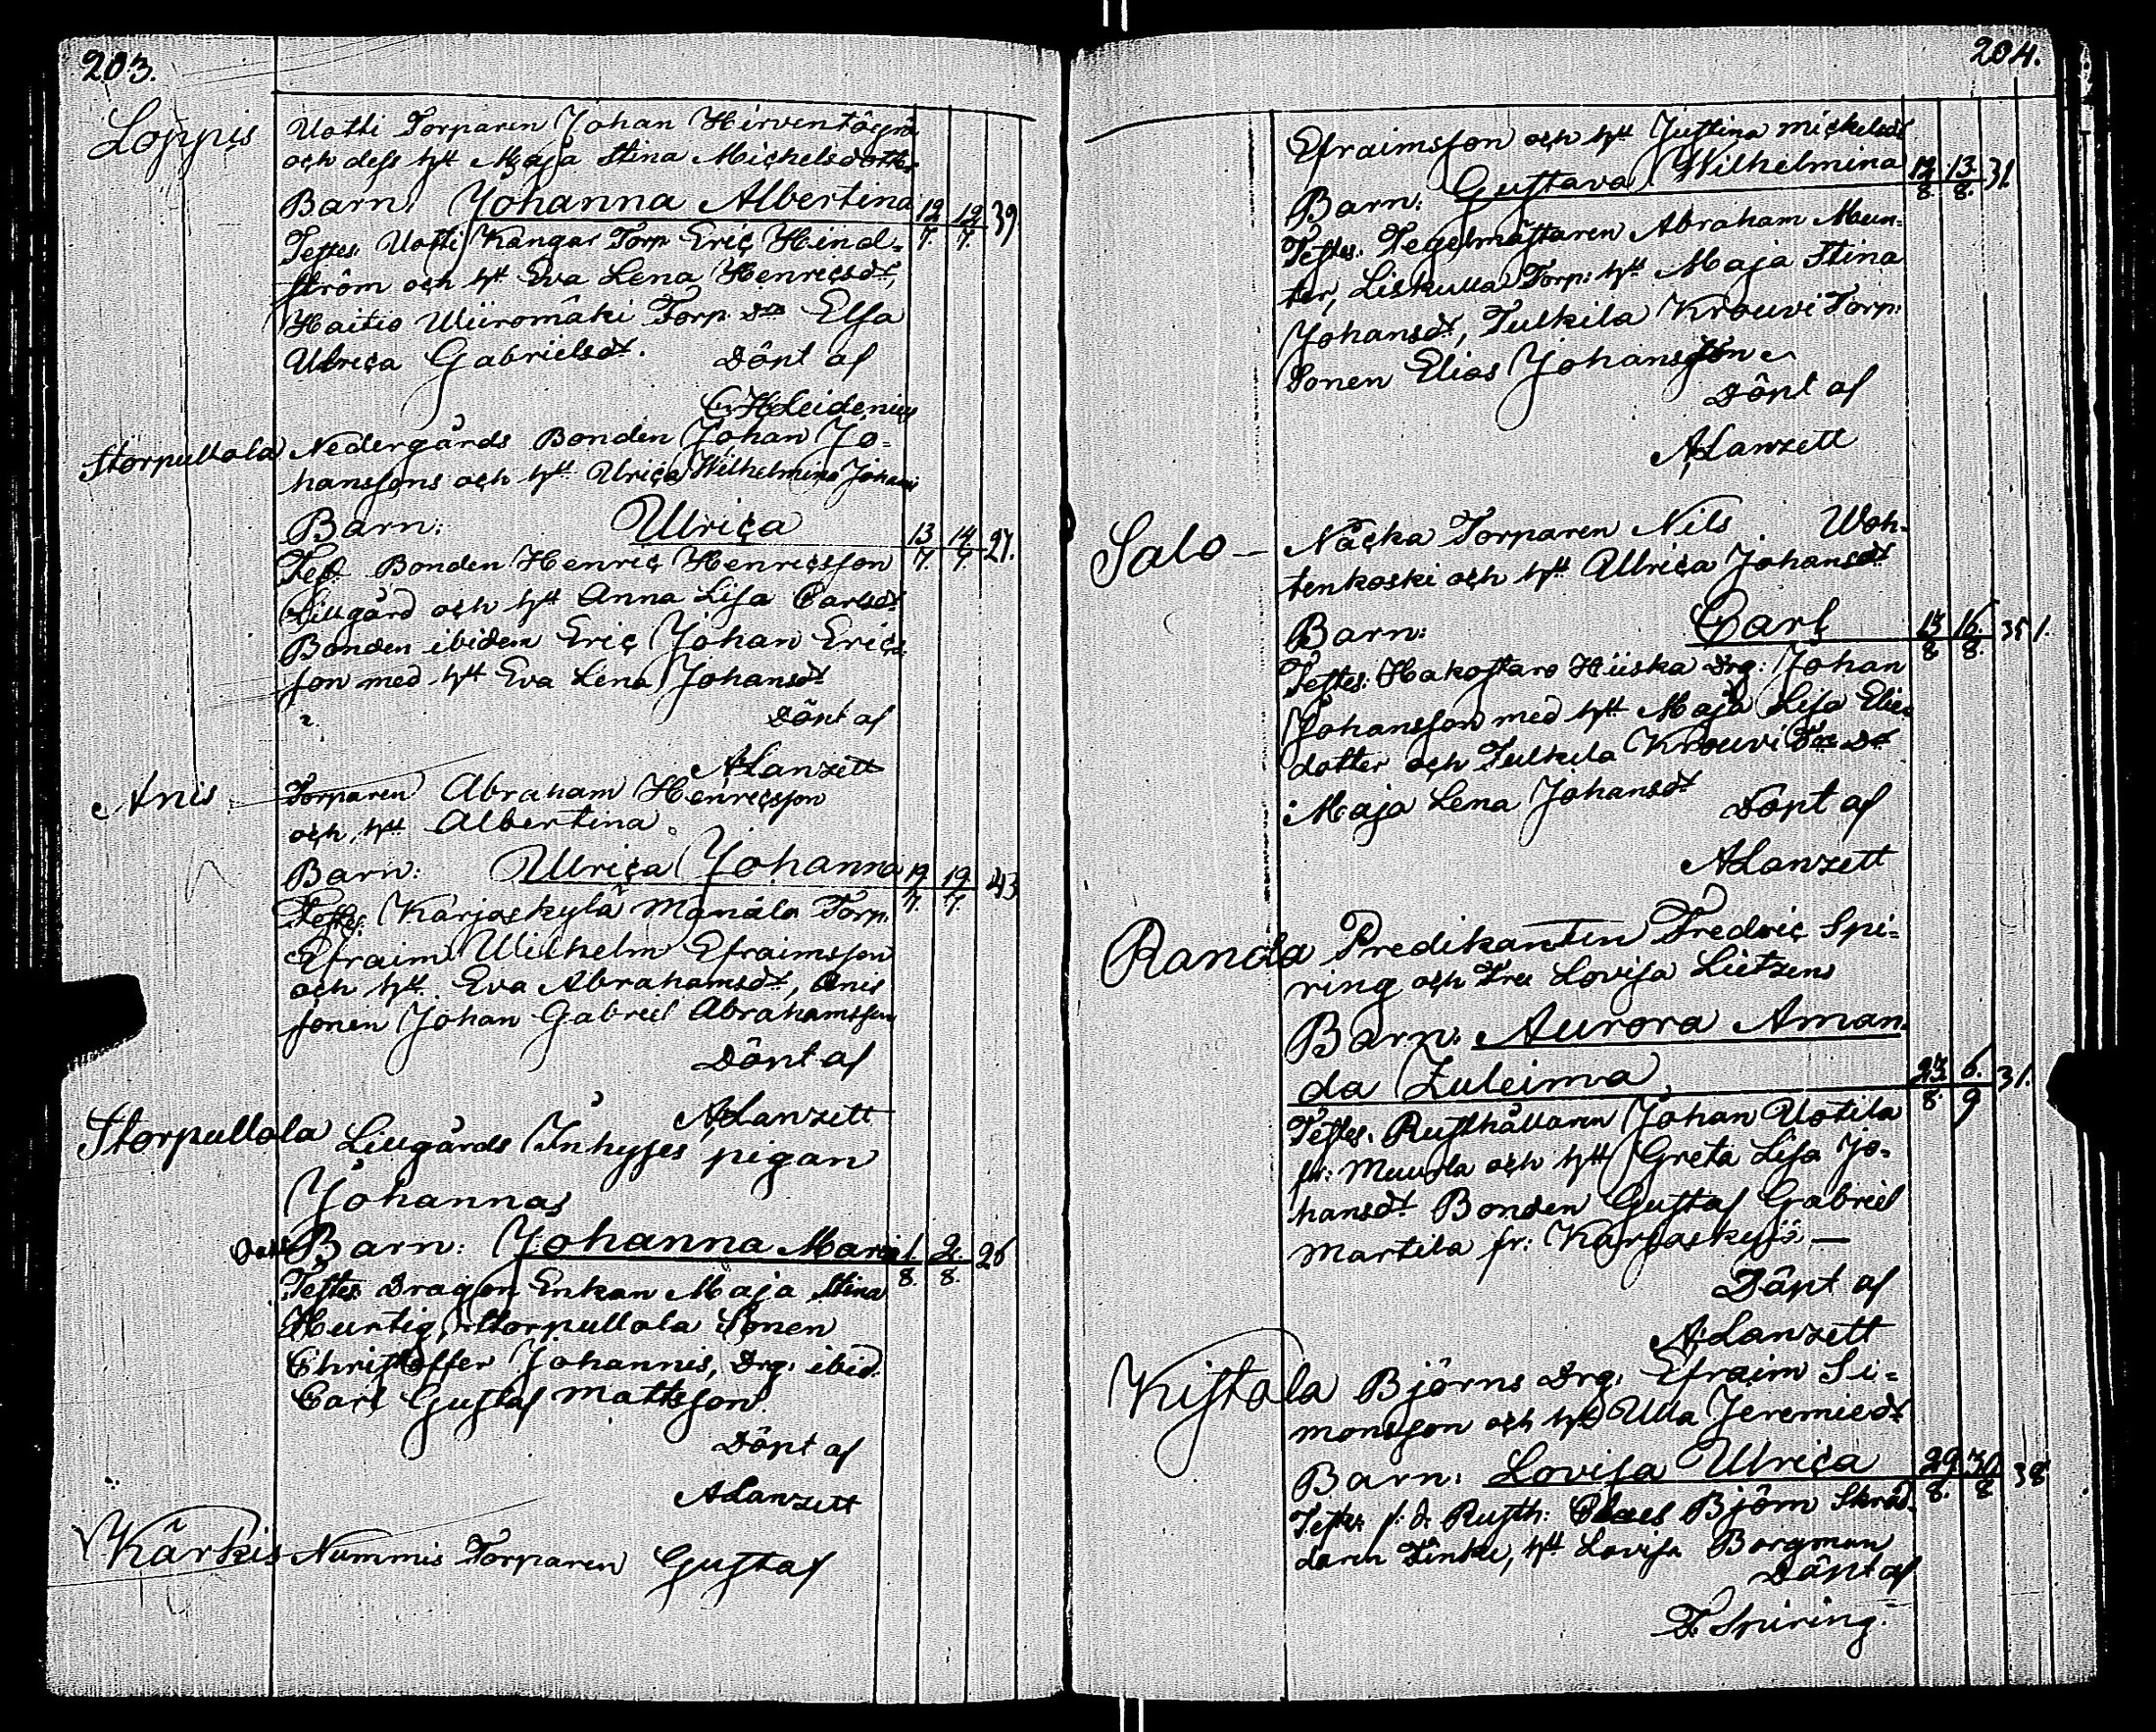 203.
Loppis Uotti Torparen Johan Hirventögrä
och dess hu Maja Stina Michelsdotter
Barn: Johanna Albertina 12/7. 12/7. 39
Testes: Uotti Kangas Torp Eric Hind-
ström och hu Eva Lena Henricsdr,
Haitio Wiiromäki Torp dr Elsa
Ulrica Gabrielsdr. Döpt af
C. H. Leidenius
Storpullola Nedergårds Bonden Johan Jo-
hanssons och hu Ulrica Wilhelmina Johans
Barn: Ulrica 13/7. 14/7. 27.
Test. Bonden Henric Henricsson
Lillgård och hu Anna Lisa Carlsdr
Bonden ibidem Eric Johan Erics-
son med hu Eva Lena Johansdr
Döpt af
A Lanzett
Anis Torparen Abraham Henricsson
och hu Albertina
Barn: Ulrica Johanna 19/7. 19/7. 43
Testes: Karjaskylä Manála Torp.
Efraim Wilhelm Efraimsson
och hu Eva Abrahamsdr, Anis
sonen Johan Gabriel Abrahamsson
Döpt af
A Lanzett
Storpullola Lillgårds Inhyses pigan
Johannas
Barn: Johanna Maria 1/8. 2/8. 26
Testes Dragon Enkan Maja Stina
Hurtig, Storpullola Sonen
Christoffer Johannis, Drg. ibid.
Carl Gustaf Mattsson.
Döpt af
A Lanzett
Kärkis Nummis Torparen Gustaf
204.
Efraimsson och hu Justina Mickelsdr
Barn: Gustava Wilhelmina 12/8. 13/8. 31
Testes: Tegelmästaren Abraham Mun-
ter, Liskulla Torp: hu Maja Stina
Johansdr, Tulkila Krouvi Torp:
Sonen Elias Johansson
Döpt af
A Lanzett
Salo – Näcka Torparen Nils Woh-
tenkoski och hu Ullrica Johansdr
Barn: Carl 15/8. 16/8. 35 1.
Testes: Hakostaro Hiiska Drg: Johan
Johansson med hu Maja Lisa Elie-
dotter och Tulkila Krouvi dr
Maja Lena Johansdr Döpt af
A Lanzett
Randa Predikanten Fredric Spi-
ring och Fru Lovisa Lietzens
Barn: Aurora Aman-
da Zuleima, 23/8. 6./9 31.
Testes. Rusthållaren Johan Uotila
fr: Muurla och hu Greta Lisa Jo-
hansdr Bonden Gustaf Gabriel
Martila fr: Karjaskylä —
Döpt af
A. Lanzett
Kistola Björns Drg: Efraim Si-
monsson och hu Ulla Jeremiedr
Barn: Lovisa Ulrica 29/8. 30/8 38
Testes f: d: Rusth: Claes Björn Skräd-
daren Finke, hu Lovisa Borgman
Döpt af
F. Spiring.